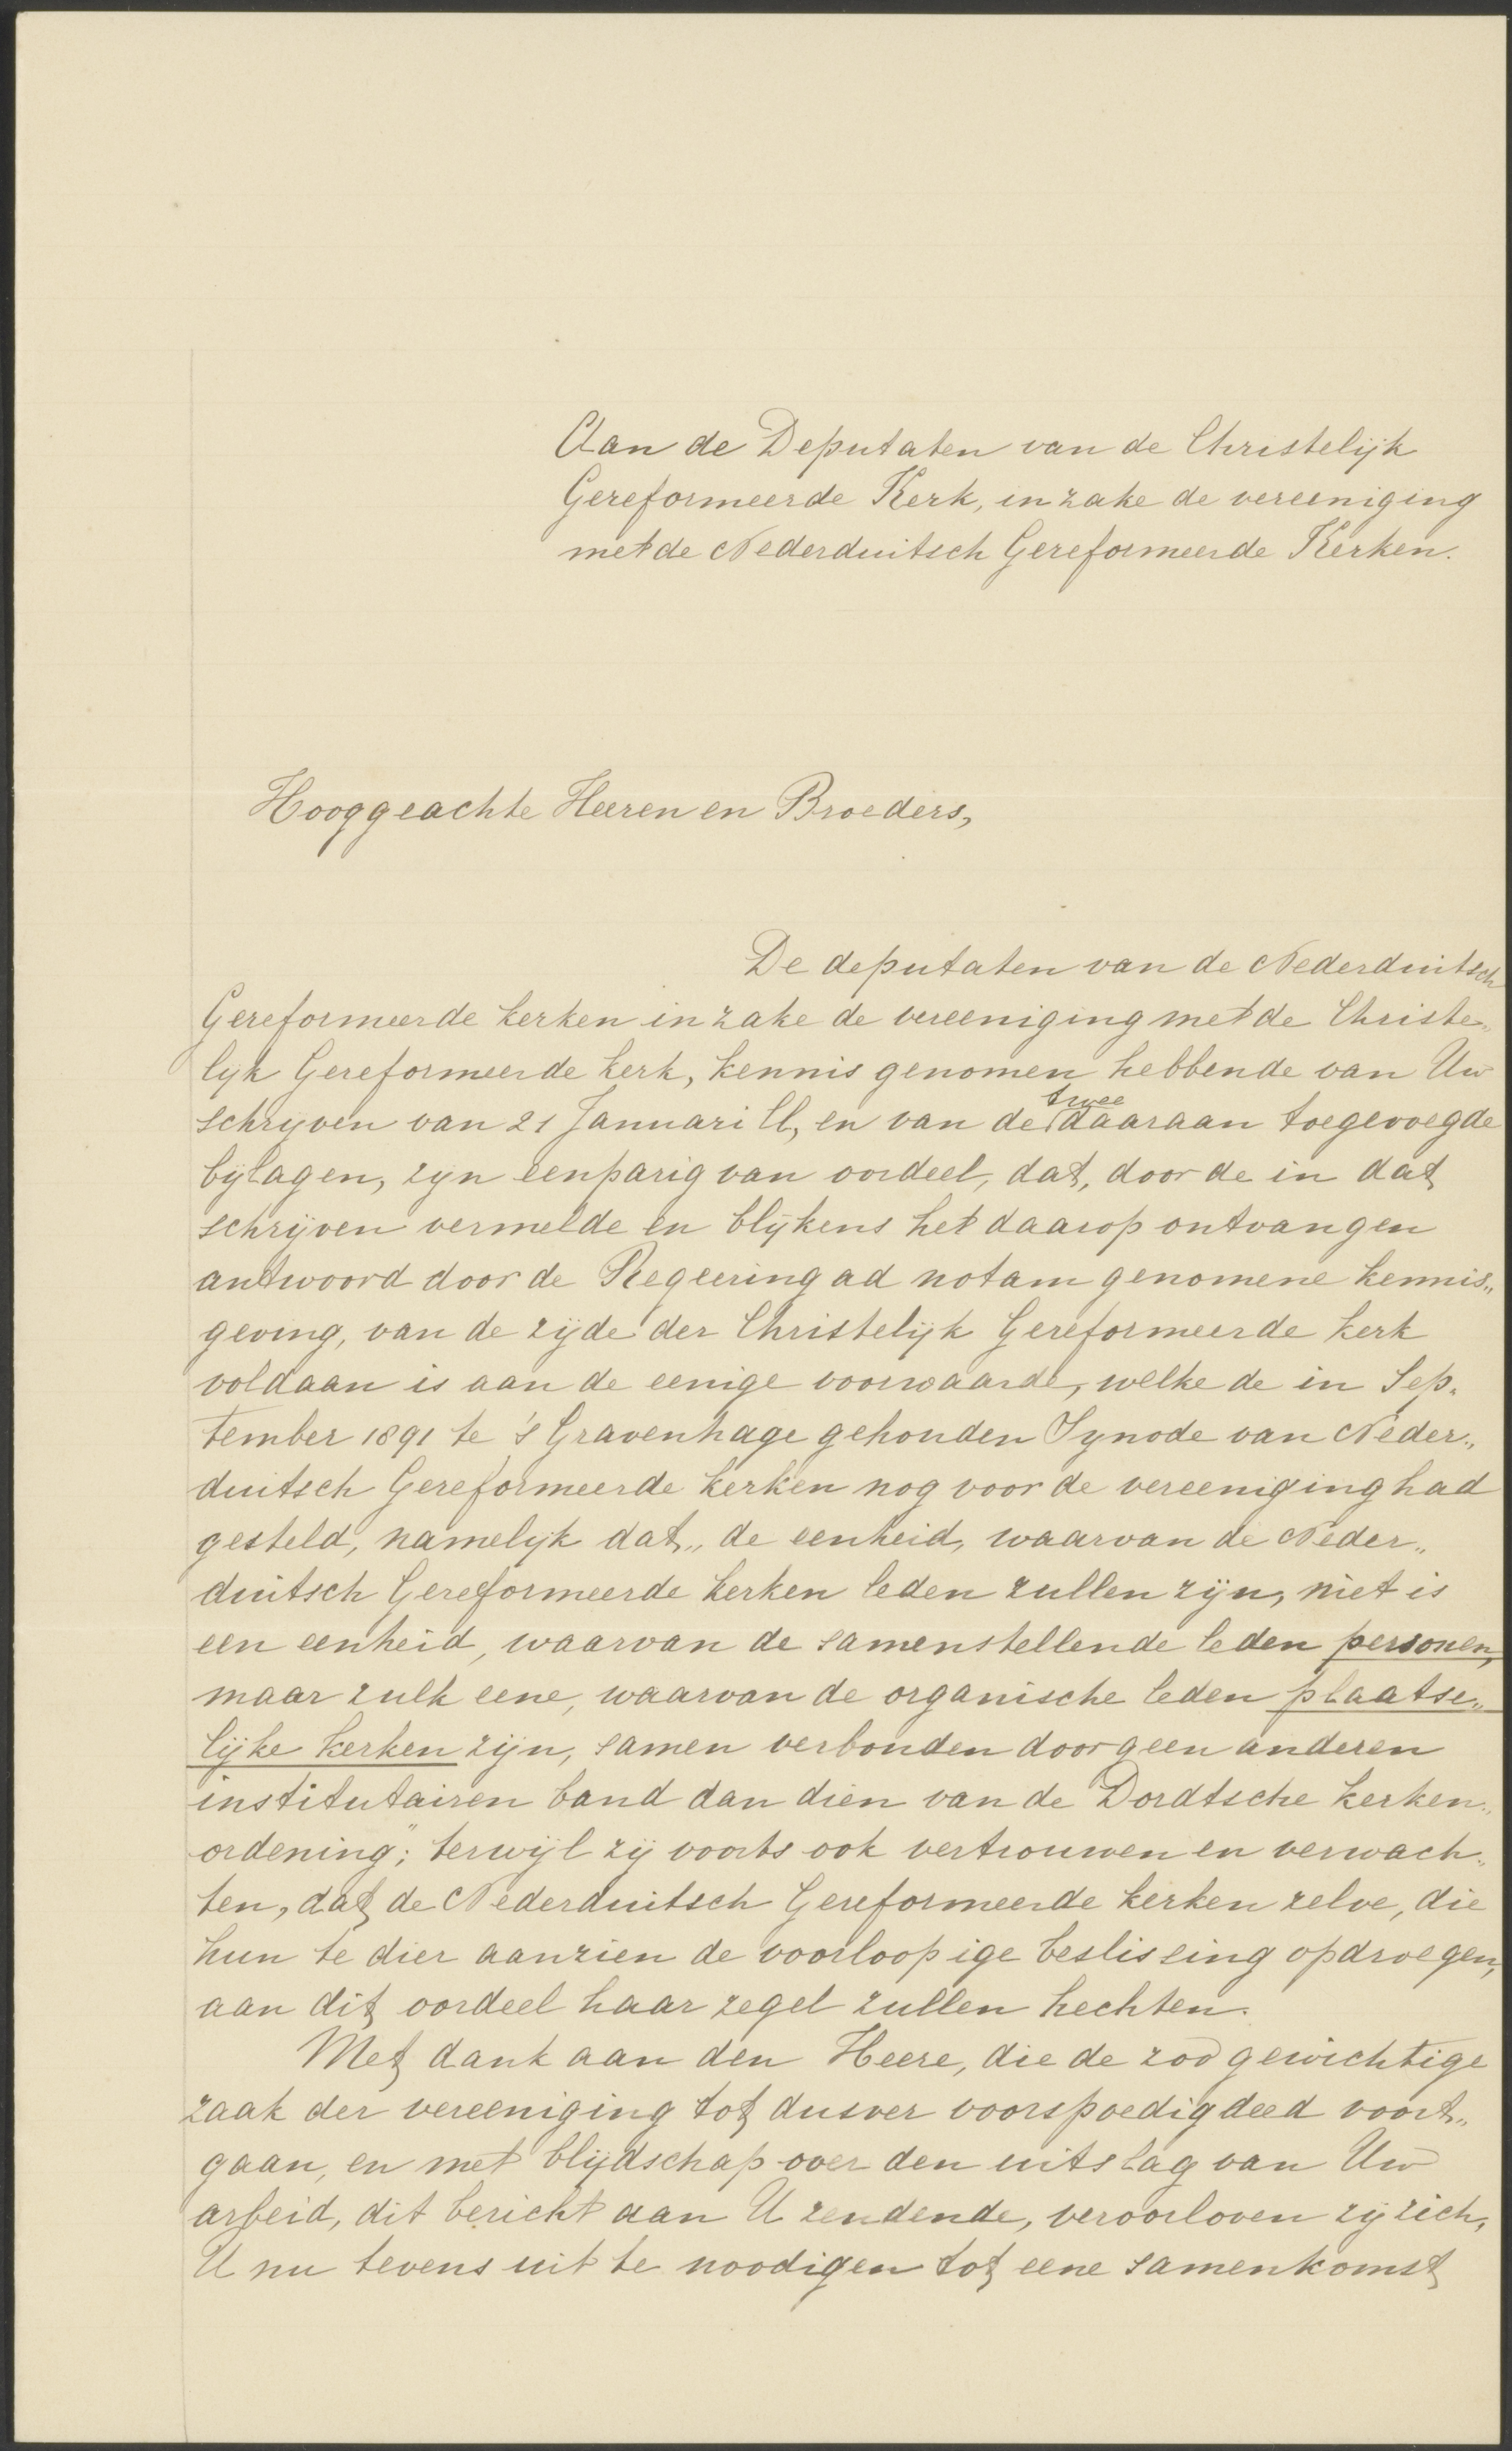 Aan de Deputaten van de Christelijk
Gereformeerde Kerk, in zake de vereeniging
met de Nederduitsch Gereformeerde Kerken.
Hooggeachte Heeren en Broeders,
De deputaten van de Nederduitsch
Gereformeerde kerken in zake de vereeniging met de Christe„
lijk Gereformeerde kerk, kennis genomen hebbende van Uw
schrijven van 21 Januari ll, en van de twee daaraan toegevoegde
bijlagen, zijn eenparig van oordeel, dat, door de in dat
schrijven vermelde en blijkens het daarop ontvangen
antwoord door de Regeering ad notam genomene kennis„
geving, van de zijde der Christelijk Gereformeerde kerk
voldaan is aan de eenige voorwaarde, welke de in Sep„
tember 1891 te 's Gravenhage gehouden Synode van Neder„
duitsch Gereformeerde kerken nog voor de vereeniging had
gesteld, namelijk dat „de eenheid, waarvan de Neder„
duitsch Gereformeerde kerken leden zullen zijn, niet is
een eenheid, waarvan de samenstellende leden personen,
maar zulk eene, waarvan de organische leden plaatse„
lijke kerken zijn, samen verbonden door geen anderen
institutairen band dan dien van de Dordtsche kerken„
ordening"; terwijl zij voorts ook vertrouwen en verwach„
ten, dat de Nederduitsch Gereformeerde kerken zelve, die
hun te dier aanzien de voorloopige beslissing opdroegen,
aan dit oordeel haar zegel zullen hechten.
Met dank aan den Heere, die de zoo gewichtige
zaak der vereeniging tot dusver voorspoedig deed voort„
gaan, en met blijdschap over den uitslag van Uw
arbeid, dit bericht aan U zendende, veroorloven zij zich,
U nu tevens uit te noodigen tot eene samenkomst